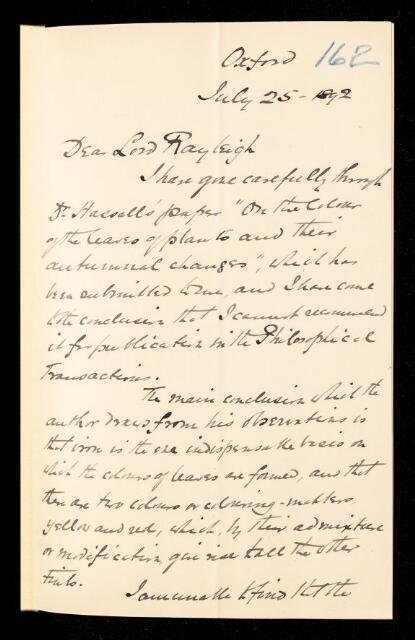 Oxford 162
July 25 - 1892
Dear Lord Rayleigh
I have gone carefully through
Dr. Hassall's paper "On the Colour
of the leaves of plants and their
autumnal changes", which has
been submitted to me, and I have come
to the conclusion that I cannot recommend
it for publication in the Philosophical
Transactions.
The main conclusion which the
author draws from his observations is
that iron is the one indispensable basis on
which the colours of leaves are formed, and that
there are two colours or colouring-matters
yellow and red, which, by their admixture
or modification, give rise to all the other
tints.
I am unable to find that the